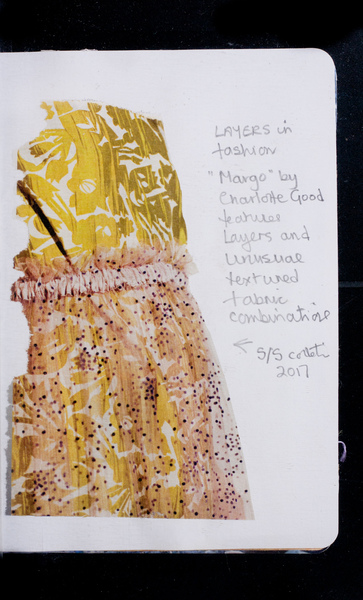 LAYERS in
fashion
"Margo" by
Charlotte Good
features
Layers and
unusual
textured
fabric
combinations
← S/S collecti
2017